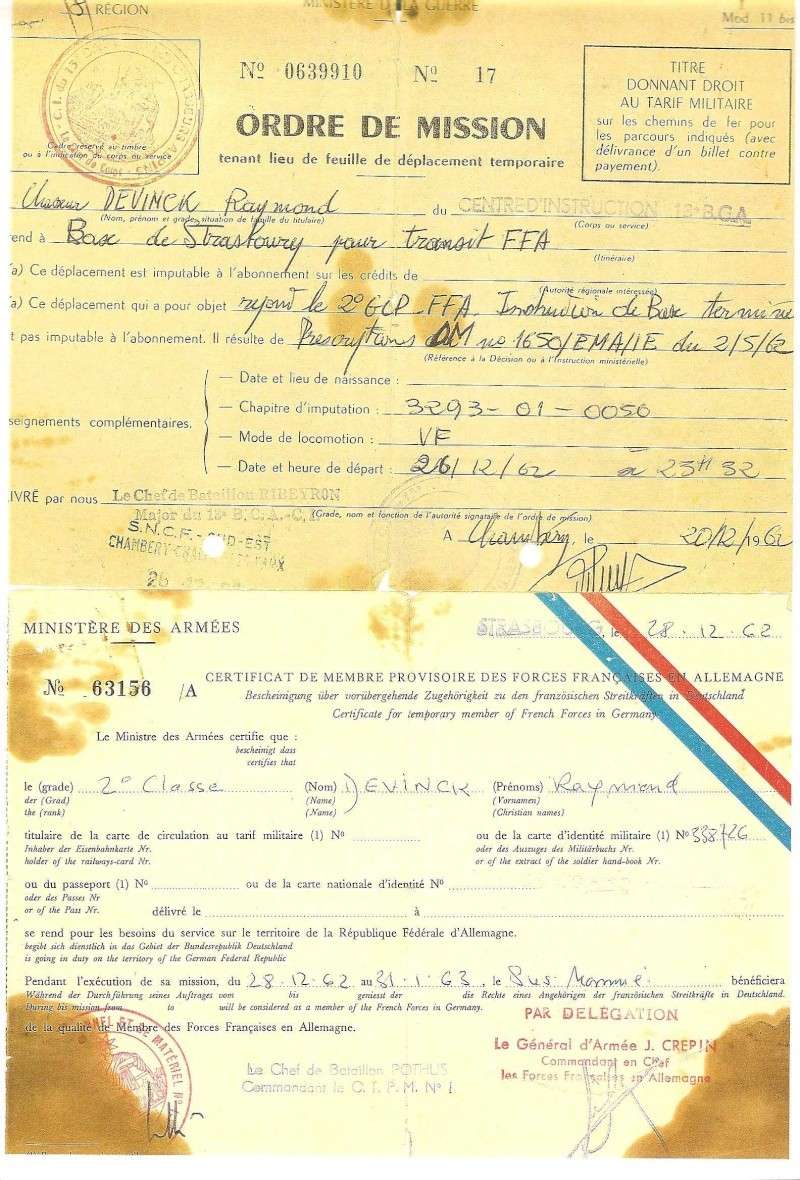 RÉGION
MINISTÈRE DE LA GUERRE
Mod. 11 bis
Cadre réservé au timbre
ou à l'indication du corps ou service
Nº 0639910 Nº 17
ORDRE DE MISSION
tenant lieu de feuille de déplacement temporaire
TITRE
DONNANT DROIT
AU TARIF MILITAIRE
sur les chemins de fer pour
les parcours indiqués (avec
délivrance d'un billet contre
payement).
Chasseur DEVINCK Raymond du CENTRE D'INSTRUCTION B.C.A
(Nom, prénom et grade, situation de famille du titulaire)
(Corps ou service)
end à Base de Strasbourg pour transit FFA
(Itinéraire)
a) Ce déplacement est imputable à l'abonnement sur les crédits de
(Autorité régionale intéressée)
a) Ce déplacement qui a pour objet rejoint le 2º GCP FFA. Instruction de Base terminée
t pas imputable à l'abonnement. Il résulte de Prescriptions DM nº 1650/EMA/IE du 2/5/62
(Référence à la Décision ou à l'Instruction ministérielle)
seignements complémentaires.
— Date et lieu de naissance :
— Chapitre d'imputation : 3293-01-0050
— Mode de locomotion : VF
— Date et heure de départ : 26/12/62 à 23H32
IVRÉ par nous Le Chef de Bataillon RIBEYRON
Major du 13e B.C.A.-C.I.
(Grade, nom et fonction de l'autorité signataire de l'ordre de mission)
S.N.C.F.-SUD-EST
CHAMBERY
26
A Chambéry, le 20/12/1962
MINISTÈRE DES ARMÉES
STRASBOURG, le 28.12.62
Nº 63156 /A
CERTIFICAT DE MEMBRE PROVISOIRE DES FORCES FRANÇAISES EN ALLEMAGNE
Bescheinigung über vorübergehende Zugehörigkeit zu den französischen Streitkräften in Deutschland
Certificate for temporary member of French Forces in Germany
Le Ministre des Armées certifie que :
bescheinigt dass
certifies that
le (grade) 2º Classe (Nom) DEVINCK (Prénoms) Raymond
der (Grad) (Name) (Vornamen)
the (rank) (Name) (Christian names)
titulaire de la carte de circulation au tarif militaire (1) Nº ou de la carte d'identité militaire (1) Nº 338726
Inhaber der Eisenbahnkarte Nr. oder des Auszuges des Militärbuchs Nr.
holder of the railways-card Nr. or of the extract of the soldier hand-book Nr.
ou du passeport (1) Nº ou de la carte nationale d'identité Nº
oder des Passes Nr
or of the Pass Nr. délivré le à
se rend pour les besoins du service sur le territoire de la République Fédérale d'Allemagne.
begibt sich dienstlich in das Gebiet der Bundesrepublik Deutschland
is going in duty on the territory of the German Federal Republic
Pendant l'exécution de sa mission, du 28.12.62 au 31.1.63, le Sus Nommé bénéficiera
Während der Durchführung seines Auftrages vom bis geniesst der die Rechte eines Angehörigen der französischen Streitkräfte in Deutschland.
During his mission from to will be considered as a member of the French Forces in Germany.
de la qualité de Membre des Forces Françaises en Allemagne.
PAR DELEGATION
Le Général d'Armée J. CREPIN
Commandant en Chef
les Forces Françaises en Allemagne
Le Chef de Bataillon POTHUS
Commandant le C.T.P.M. Nº 1
ET DE MATÉRIEL Nº